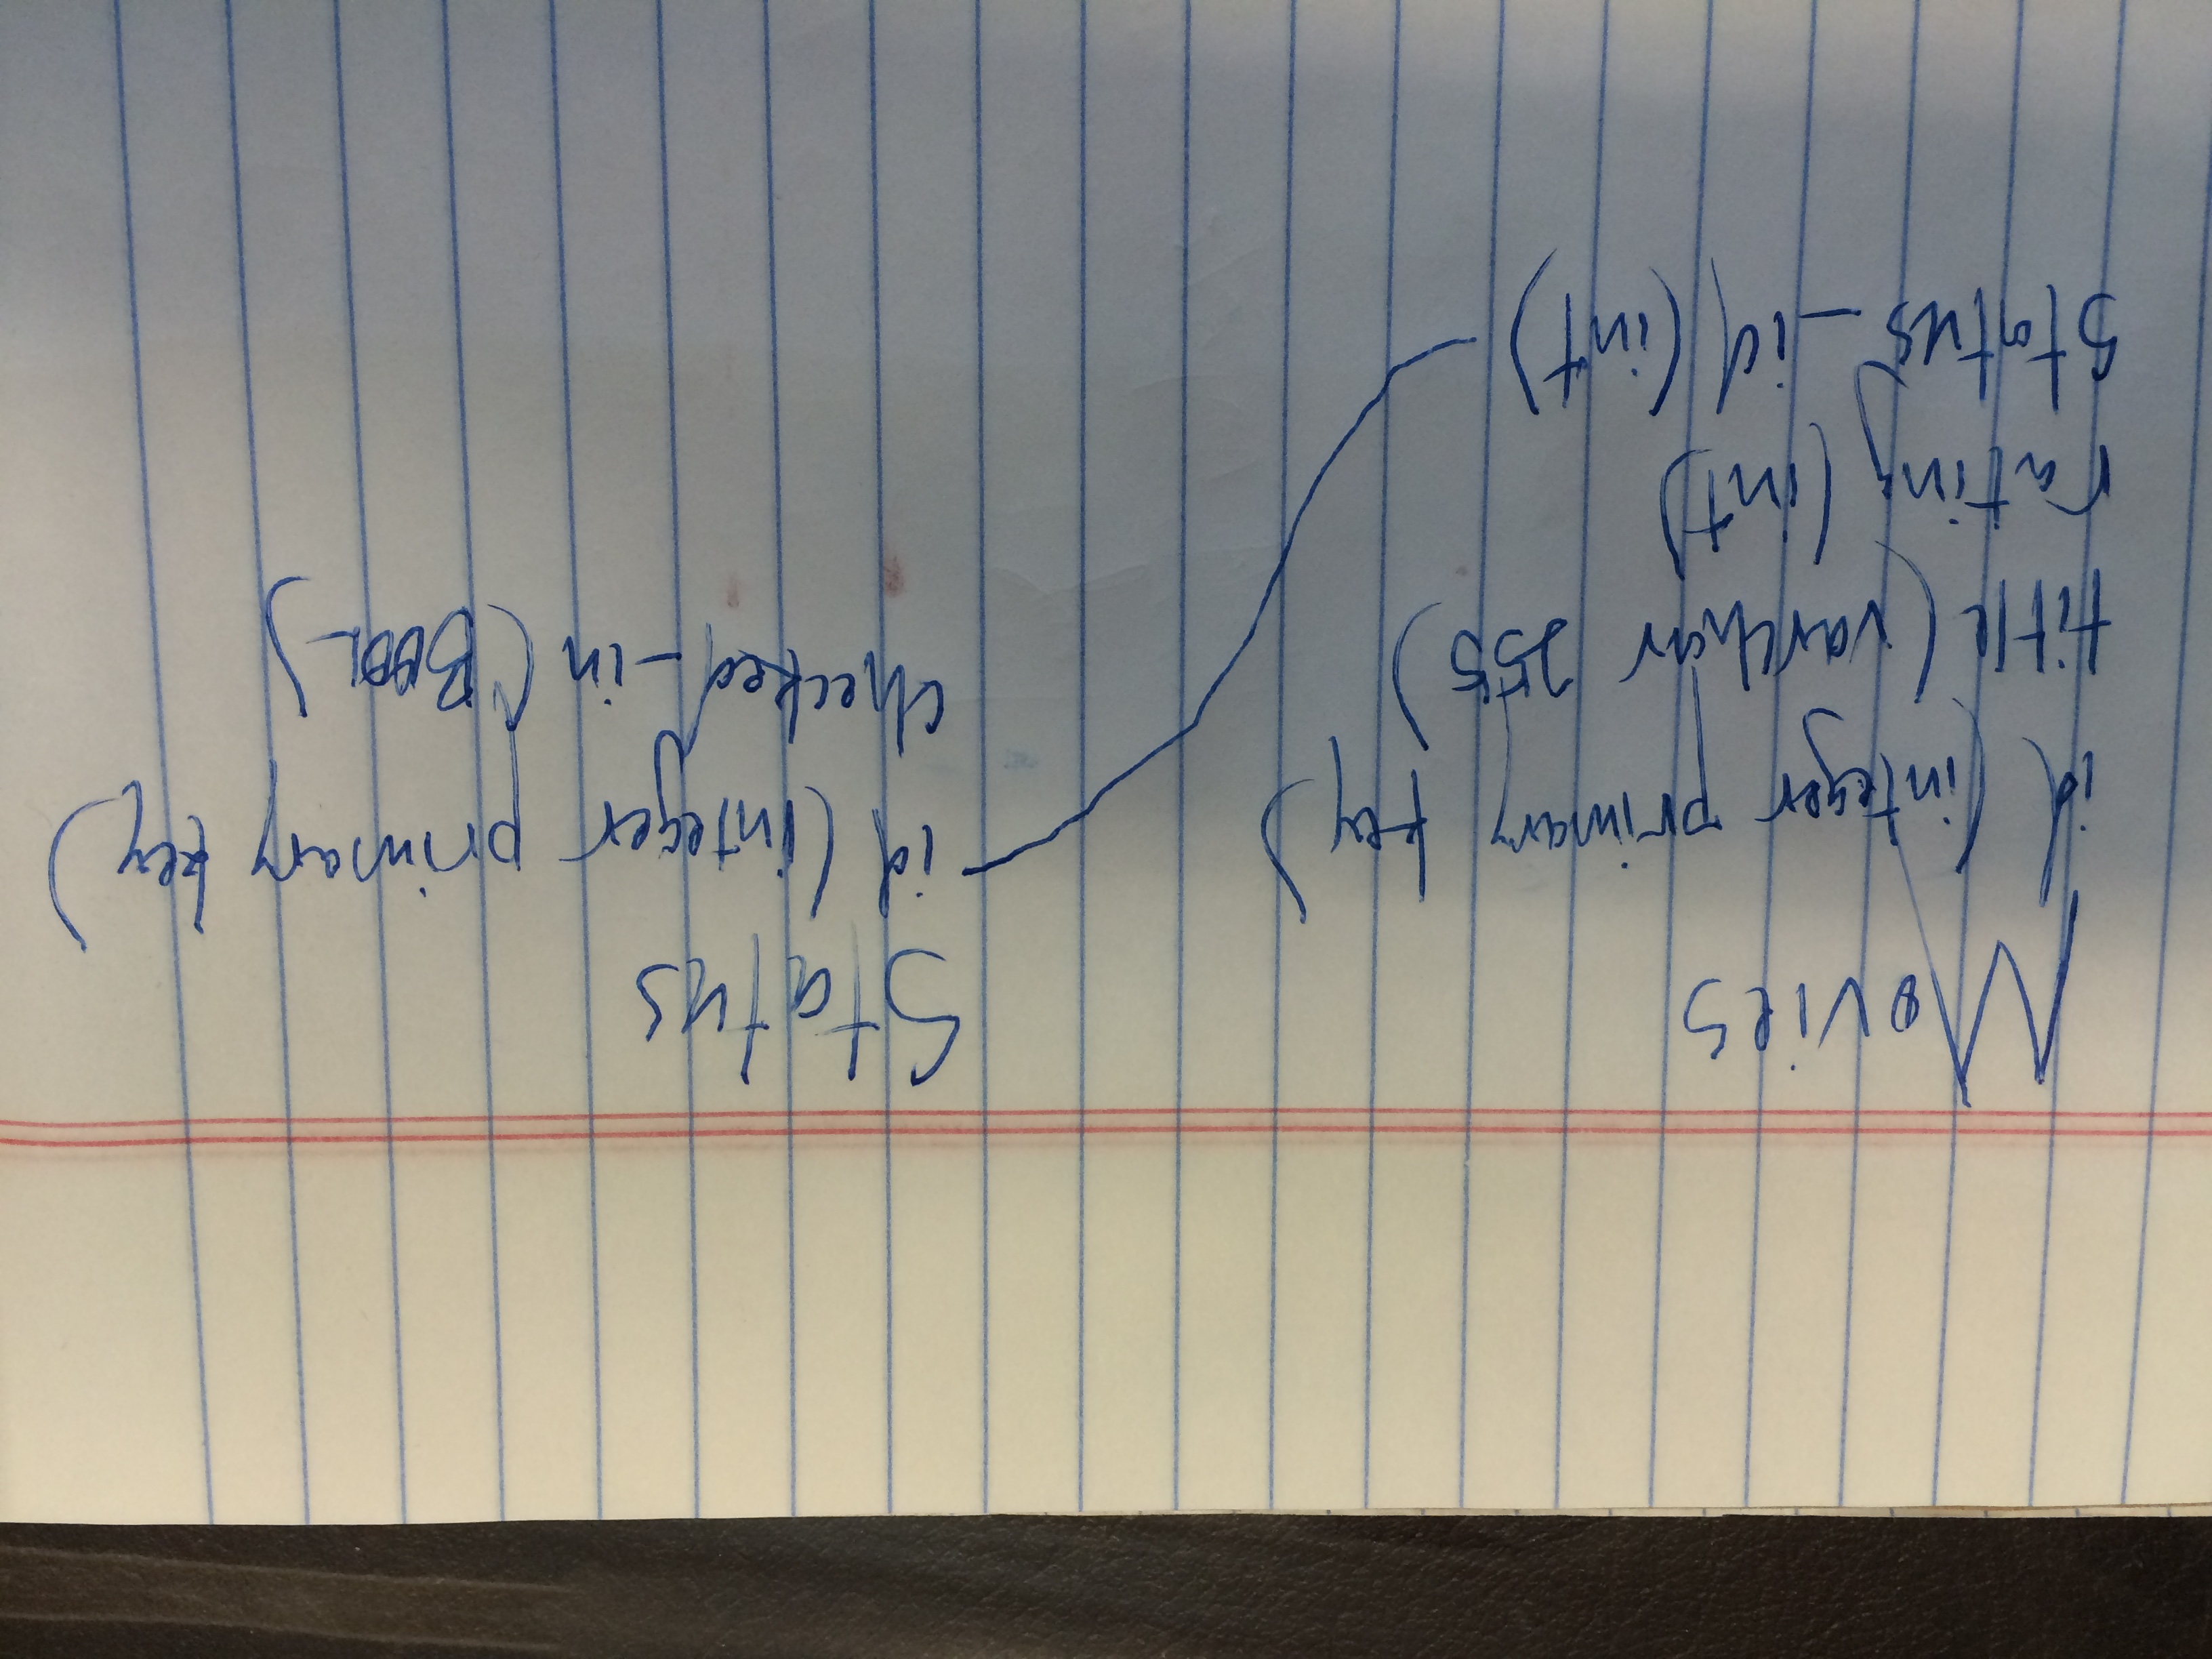 Movies
id (integer primary key)
title (varchar 255)
rating (int)
status_id (int)
Status
id (integer primary key)
checked_in (BOOL)